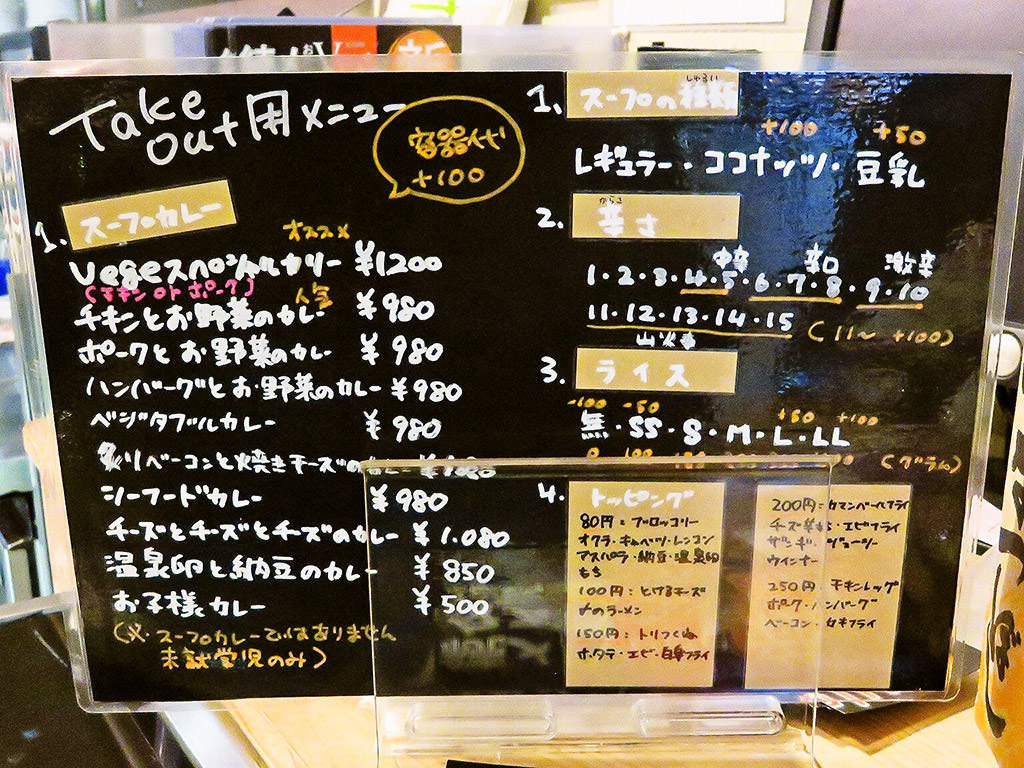 Take
Out用メニュー
容器代
+100
1. スープカレー
オススメ
vegeスペシャルカリー ¥1200
(チキン or ポーク)
人気
チキンとお野菜のカレー ¥980
ポークとお野菜のカレー ¥980
ハンバーグとお野菜のカレー ¥980
ベジタブルカレー ¥980
炙りベーコンと焼きチーズのカレー
シーフードカレー ¥980
チーズとチーズとチーズのカレー ¥1.080
温泉卵と納豆のカレー ¥850
お子様カレー ¥500
(※スープカレーではありません
未就学児のみ)
しゅるい
1. スープの種類
+100 +50
レギュラー・ココナッツ・豆乳
からさ
2. 辛さ
中辛 辛口 激辛
1・2・3・4・5・6・7・8・9・10
11・12・13・14・15 (11〜 +100)
3. ライス
-100 -50 +50 +100
無・SS・S・M・L・LL
(グラム)
4. トッピング
80円：ブロッコリー
オクラ・キャベツ・レンコン
アスパラ・納豆・温泉卵
もち
100円：とけるチーズ
150円：トリつくね
ホタテ・エビ・白身フライ
200円：カマンベールフライ
エビフライ
ザンギ・
ウインナー
250円：チキンレッグ
ポーク・ハンバーグ
ベーコン・カキフライ